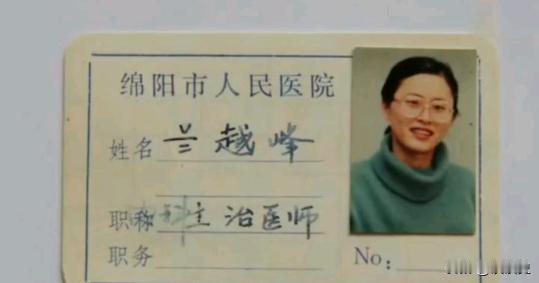 绵阳市人民医院
姓名 兰越峰
职称 主治医师
职务
No: